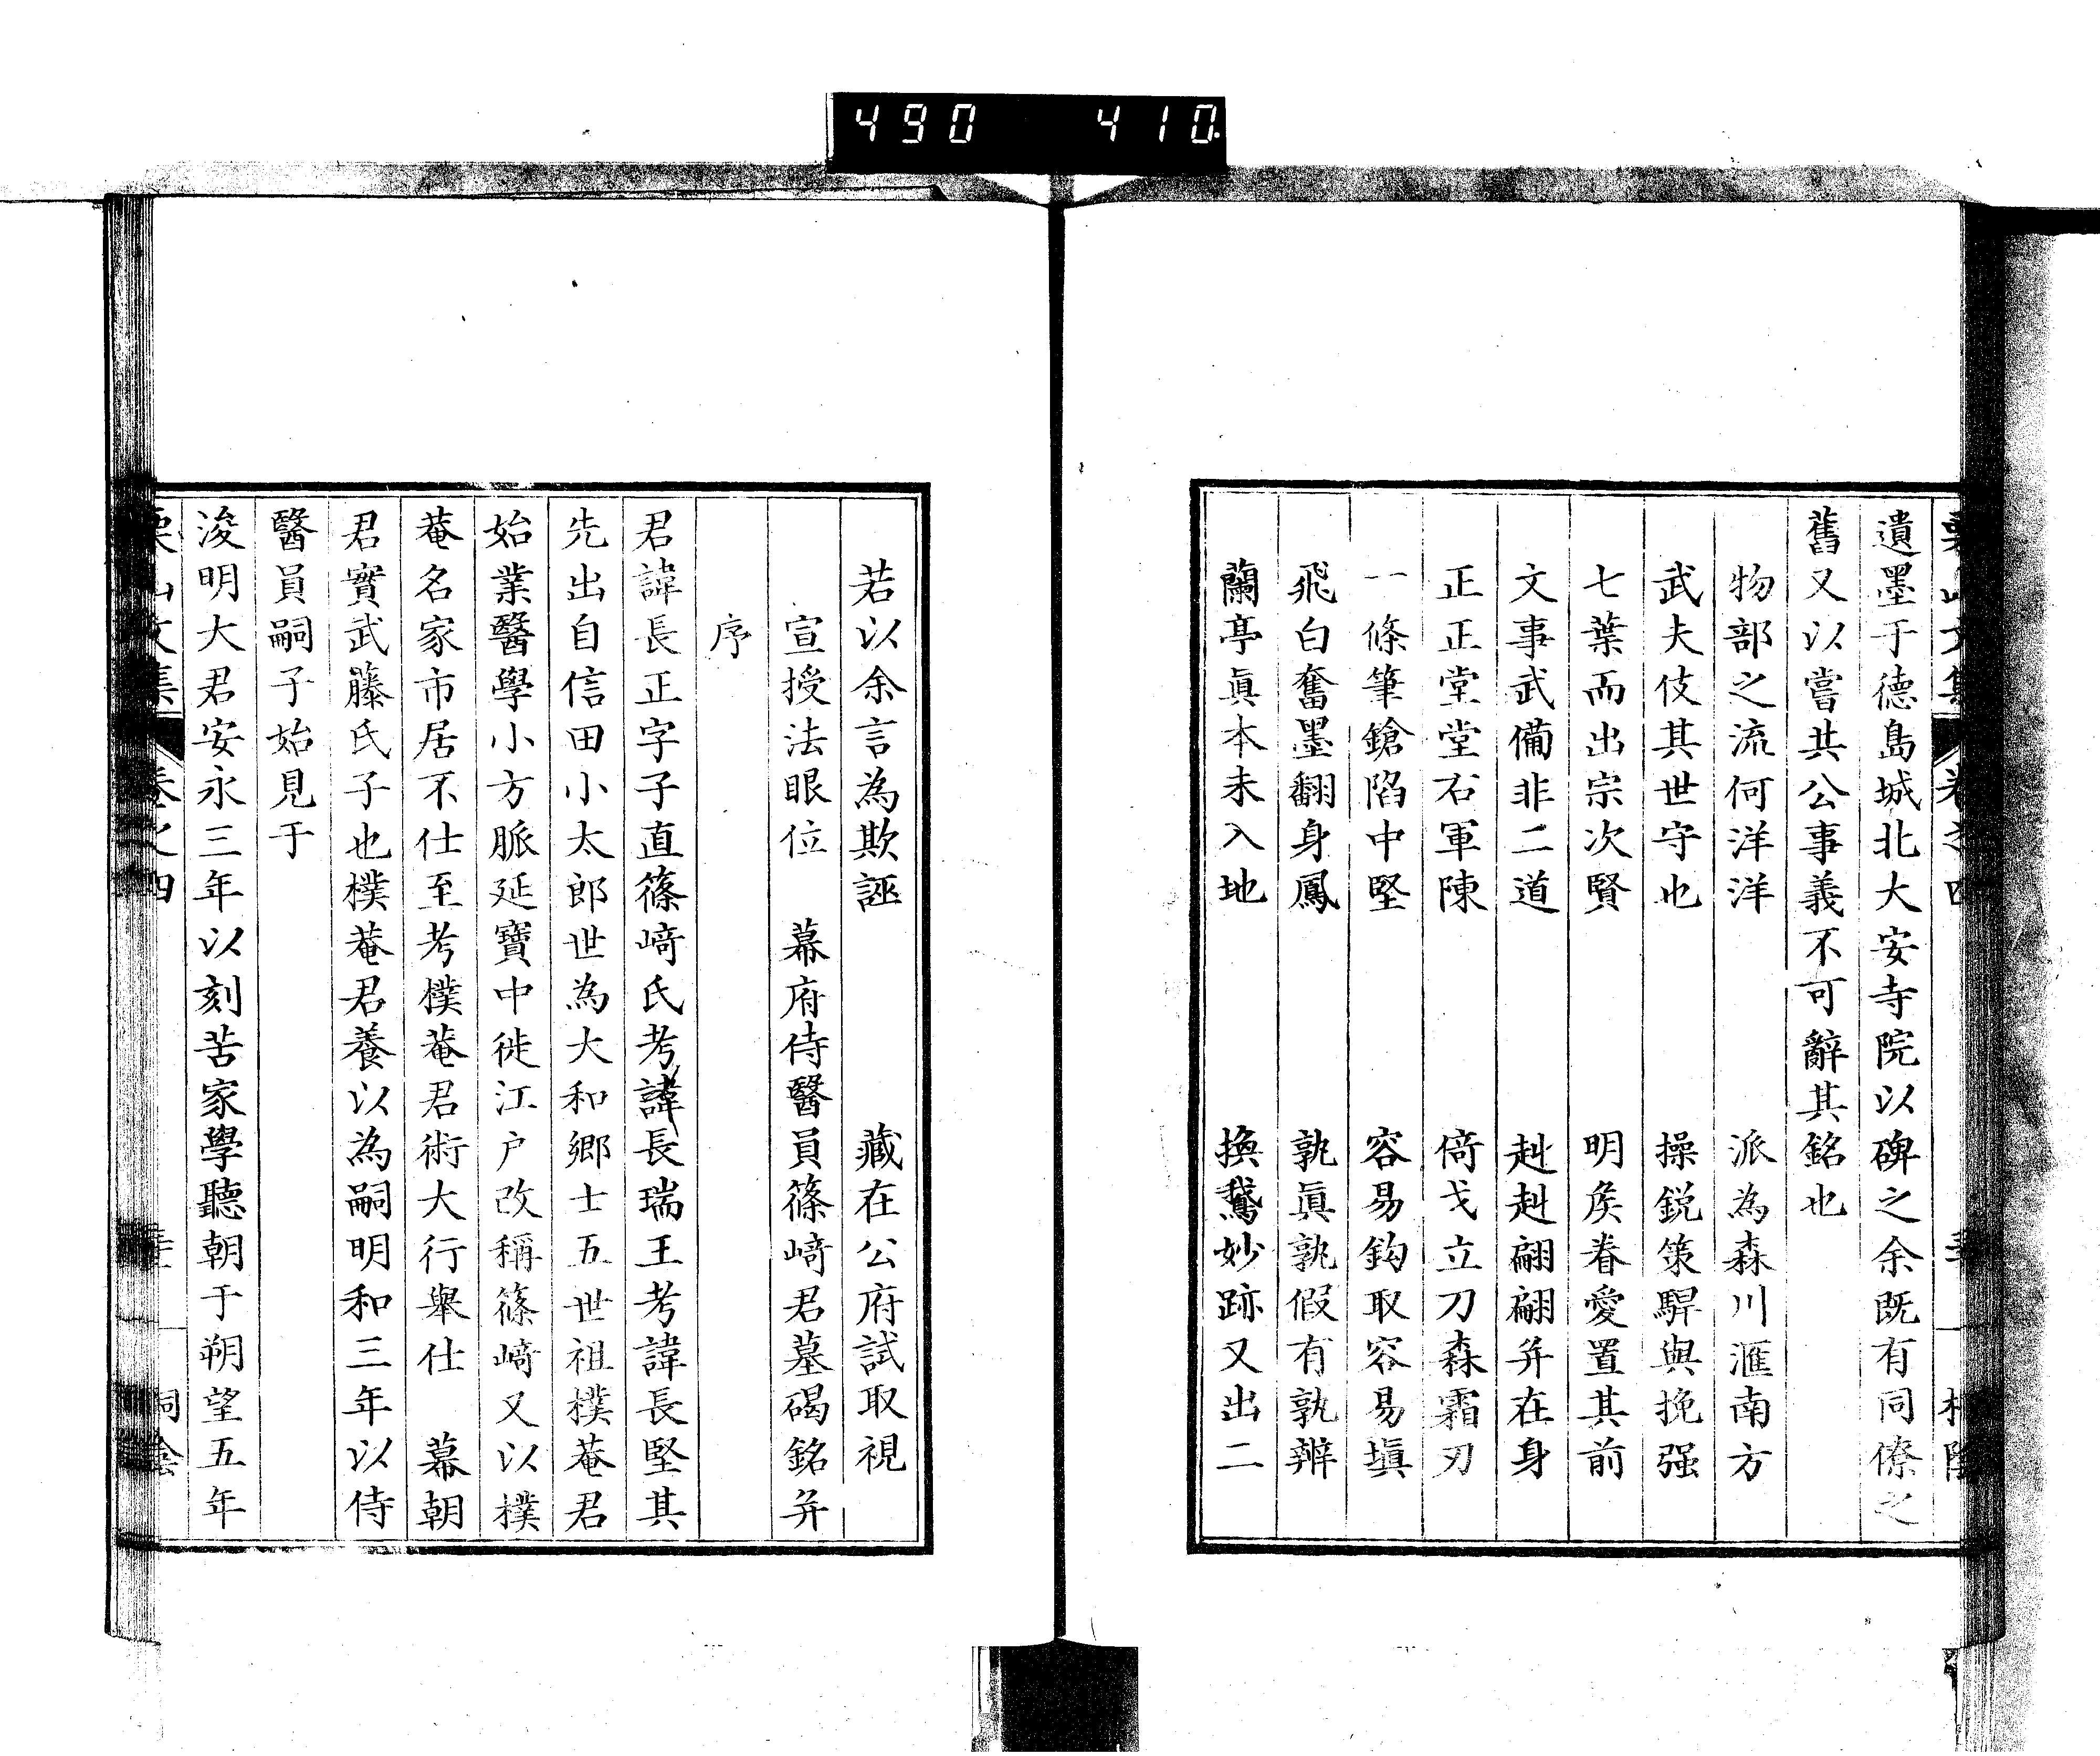 490 410
遺墨于德島城北大安寺院以碑之余既有同僚之
舊又以嘗共公事義不可辭其銘也
物部之流何洋洋 派為森川滙南方
武夫伎其世守也 操銳策駻與挽强
七葉而出宗次賢 明矦眷愛置其前
文事武備非二道 赳赳翩翩并在身
正正堂堂石軍陳 倚戈立刀森霜刃
一條筆鎗陷中堅 容易鈎取容易塡
飛白奮墨翻身鳳 孰眞孰假有孰辨
蘭亭眞本未入地 換鵞妙跡又出二
若以余言為欺誣 藏在公府試取視
宣授法眼位 幕府侍醫員篠﨑君墓碣銘并
序
君諱長正字子直篠﨑氏考諱長瑞王考諱長堅其
先出自信田小太郎世為大和鄉士五世祖樸菴君
始業醫學小方脈延寶中徙江戶改稱篠﨑又以樸
菴名家市居不仕至考樸菴君術大行舉仕 幕朝
君實武藤氏子也樸菴君養以為嗣明和三年以侍
醫員嗣子始見于
浚明大君安永三年以刻苦家學聽朝于朔望五年
文集 卷之四